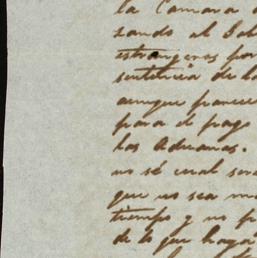 la Camara
zando al Gob
estrangeros por
sentencia de la
aunque parece
para el pago
las Aduanas.
no sé cual ser
que no sea m
tiempo y no p
de lo que haya